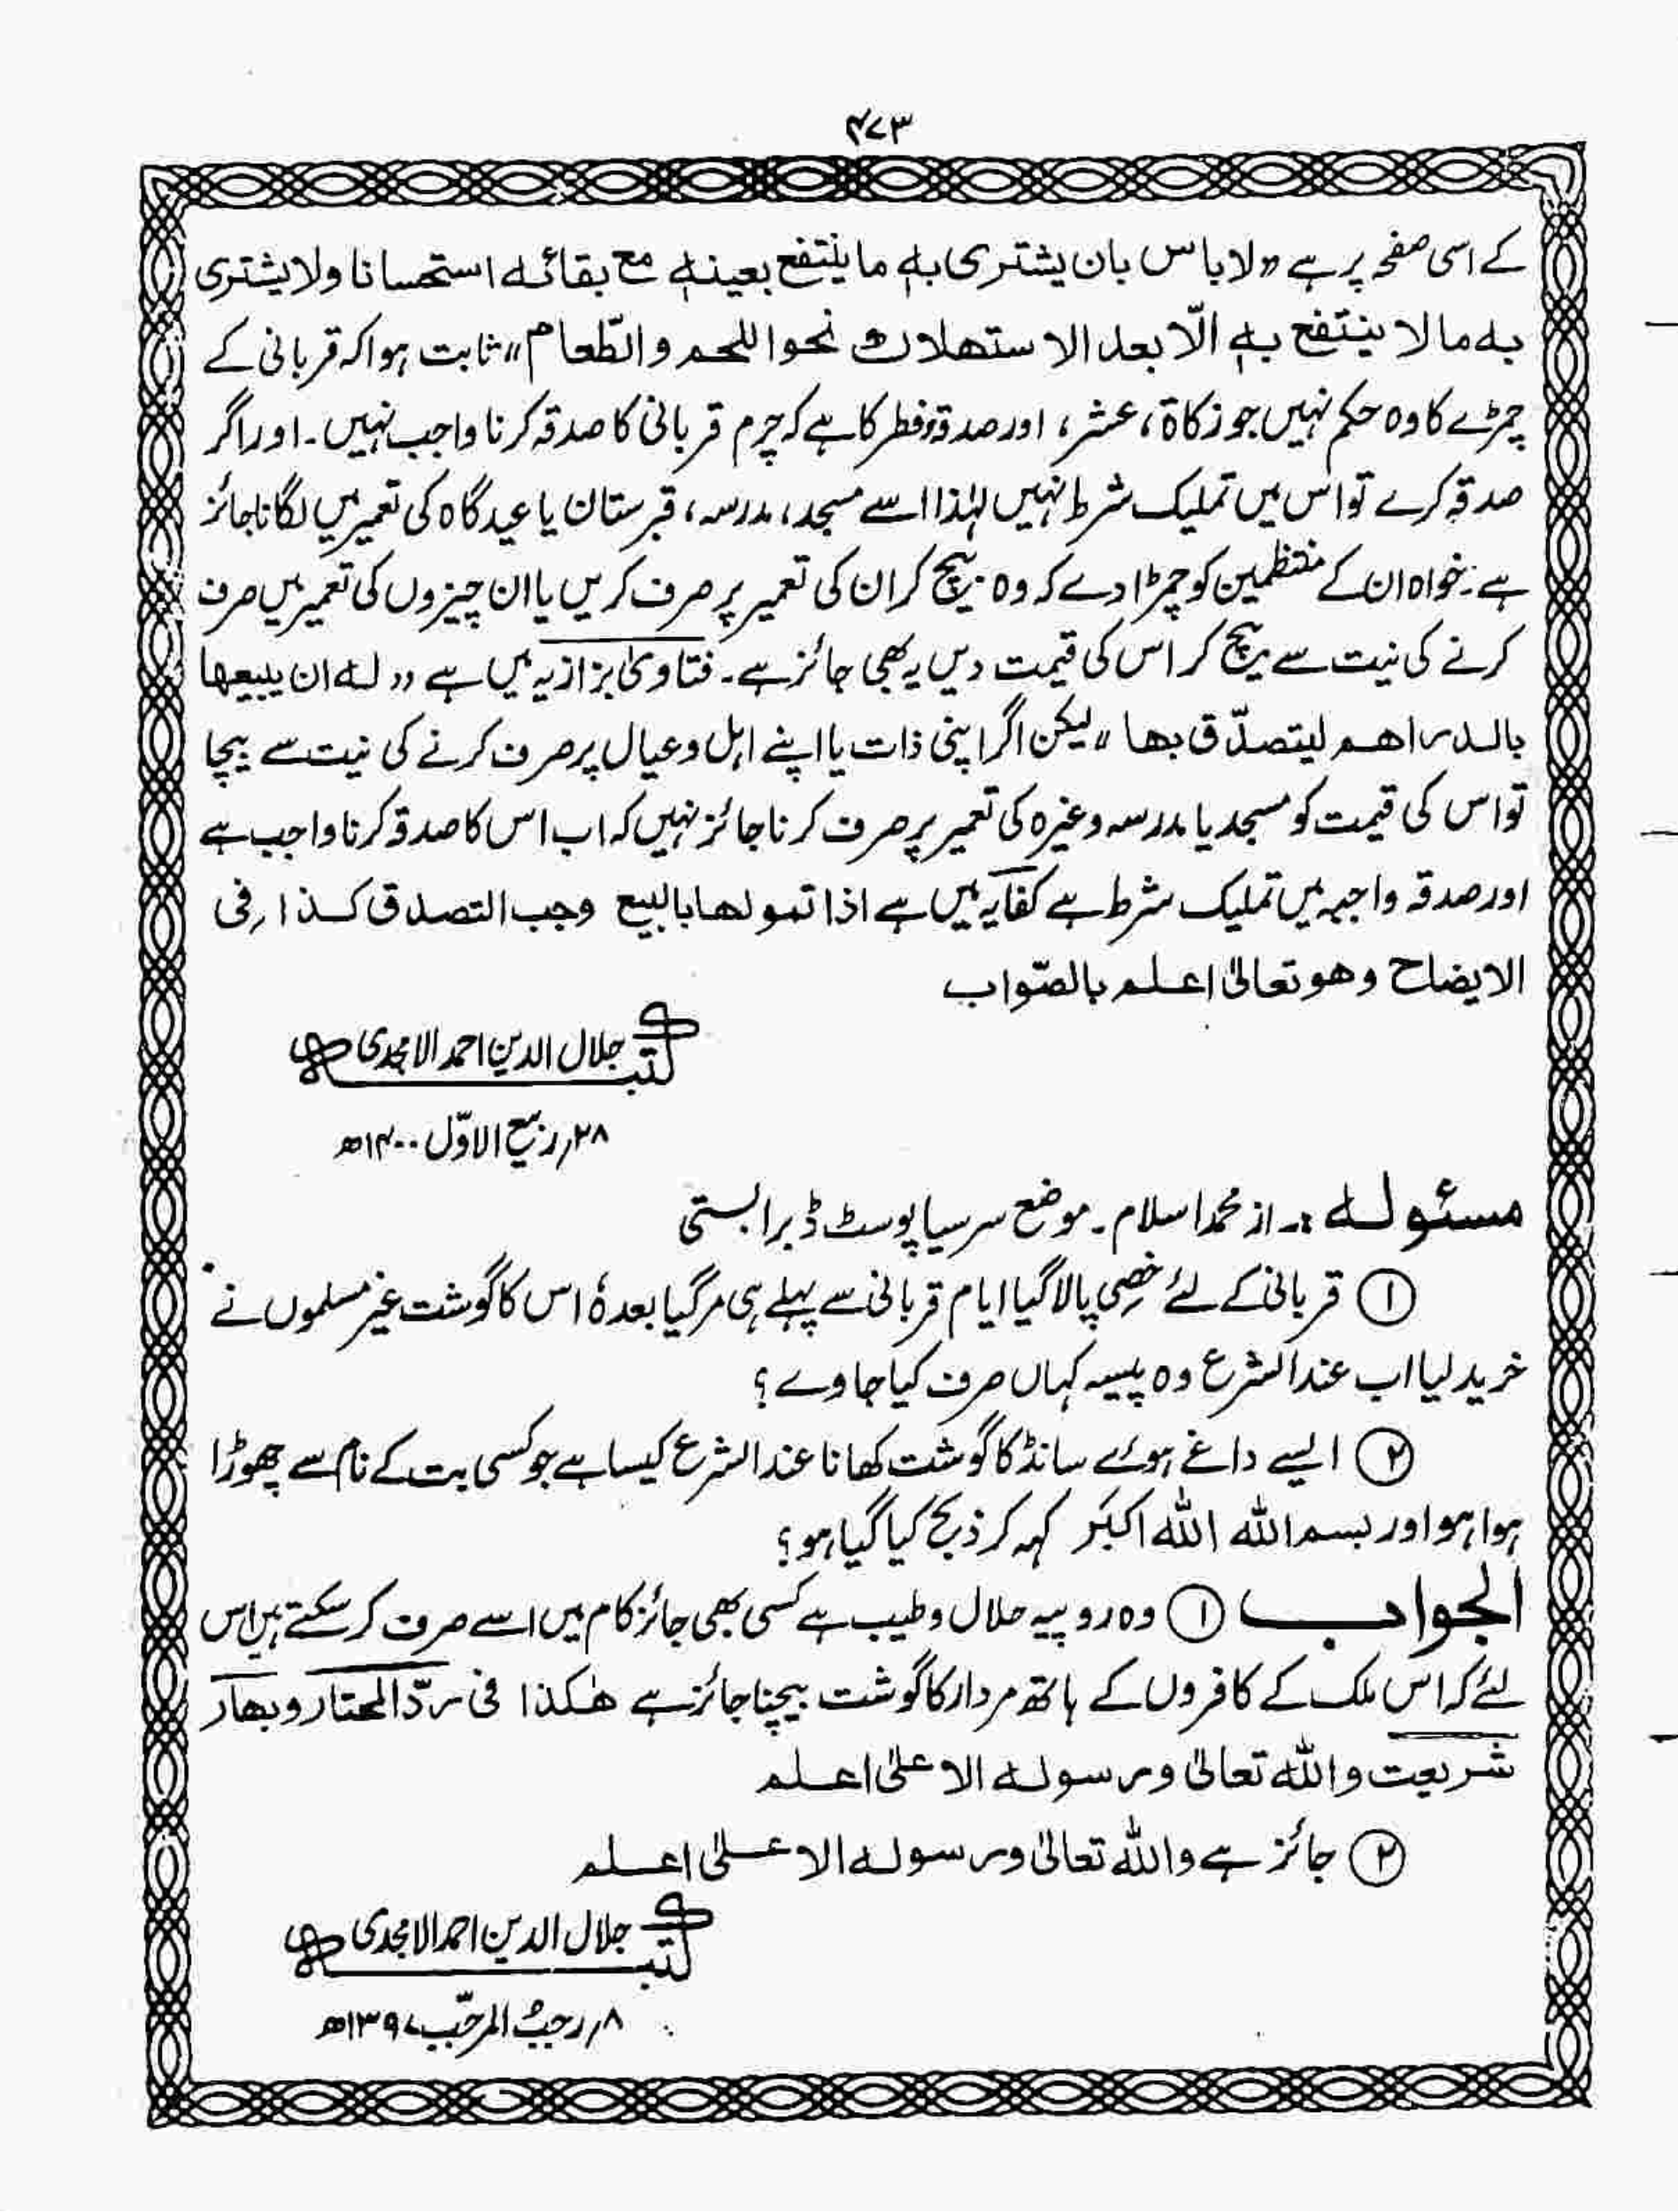 ۴۷۳
کے اسی صفحہ پر ہے ”لا باس بان یشتری بہ ما ینتفع بعینہ مع بقائہ استحسانا ولا یشتری
بہ مالا ینتفع بہ الّا بعد الاستھلاک نحو اللحم والطّعام“ ثابت ہوا کہ قربانی کے
چمڑے کا وہ حکم نہیں جو زکاۃ، عشر، اور صدقۂ فطر کا ہے کہ چرم قربانی کا صدقہ کرنا واجب نہیں۔ اور اگر
صدقہ کرے تو اس میں تملیک شرط نہیں لہٰذا اسے مسجد، مدرسہ، قبرستان یا عیدگاہ کی تعمیر میں لگانا جائز
ہے۔ خواہ ان کے منتظمین کو چمڑا دے کہ وہ بیچ کر ان کی تعمیر پر صرف کریں یا ان چیزوں کی تعمیر میں صرف
کرنے کی نیت سے بیچ کر اس کی قیمت دیں یہ بھی جائز ہے۔ فتاویٰ بزازیہ میں ہے ”لہ ان یبیعھا
بالدراھم لیتصدّق بھا“ لیکن اگر اپنی ذات یا اپنے اہل و عیال پر صرف کرنے کی نیت سے بیچا
تو اس کی قیمت کو مسجد یا مدرسہ وغیرہ کی تعمیر پر صرف کرنا جائز نہیں کہ اب اس کا صدقہ کرنا واجب ہے
اور صدقہ واجبہ میں تملیک شرط ہے کفایہ میں ہے اذا تمولھا بالبیع وجب التصدق کذا فی
الایضاح وھو تعالیٰ اعلم بالصّواب
کتبہ جلال الدین احمد الامجدی
۲۸؍ ربیع الاوّل ۱۴۰۰ھ
مسئولہ:۔ از محمد اسلام۔ موضع سرسیا پوسٹ ڈبرا بستی
① قربانی کے لئے خصی پالا گیا ایام قربانی سے پہلے ہی مر گیا بعدہٗ اس کا گوشت غیر مسلموں نے
خرید لیا اب عند الشرع وہ پیسہ کہاں صرف کیا جاوے؟
② ایسے داغے ہوئے سانڈ کا گوشت کھانا عند الشرع کیسا ہے جو کسی بت کے نام سے چھوڑا
ہوا ہو اور بسم اللہ اللہ اکبر کہہ کر ذبح کیا گیا ہو؟
الجواب ① وہ روپیہ حلال و طیب ہے کسی بھی جائز کام میں اسے صرف کر سکتے ہیں اس
لئے کہ اس ملک کے کافروں کے ہاتھ مردار کا گوشت بیچنا جائز ہے ھٰکذا فی ردّ المحتار و بھار
شریعت واللہ تعالیٰ ورسولہ الاعلیٰ اعلم
② جائز ہے واللہ تعالیٰ ورسولہ الاعلیٰ اعلم
کتبہ جلال الدین احمد الامجدی
۸؍ رجبُ المرجّب ۱۳۹۷ھ